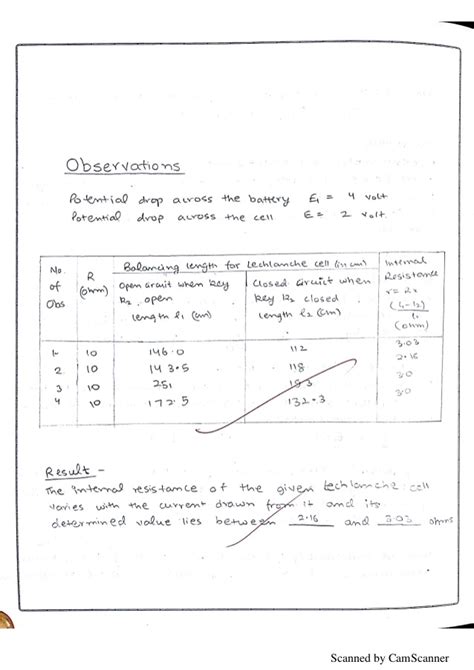 Observations
Potential drop across the battery E1 = 4 volt
Potential drop across the cell E = 2 volt.
No. of Obs
R (ohm)
Balancing length for Lechlanche cell (in cm)
Open circuit when key k2, open length l1 (cm)
Closed circuit when key k2 closed length l2 (cm)
Internal Resistance
(ohm)
1- 10 146.0 112 3.03
2 10 143.5 118 2.16
3 10 251 193 3.0
4 10 172.5 132.3 3.0
Result -
The internal resistance of the given Lechlanche cell
varies with the current drawn from it and its
determined value lies between 2.16 and 3.03 ohms
Scanned by CamScanner